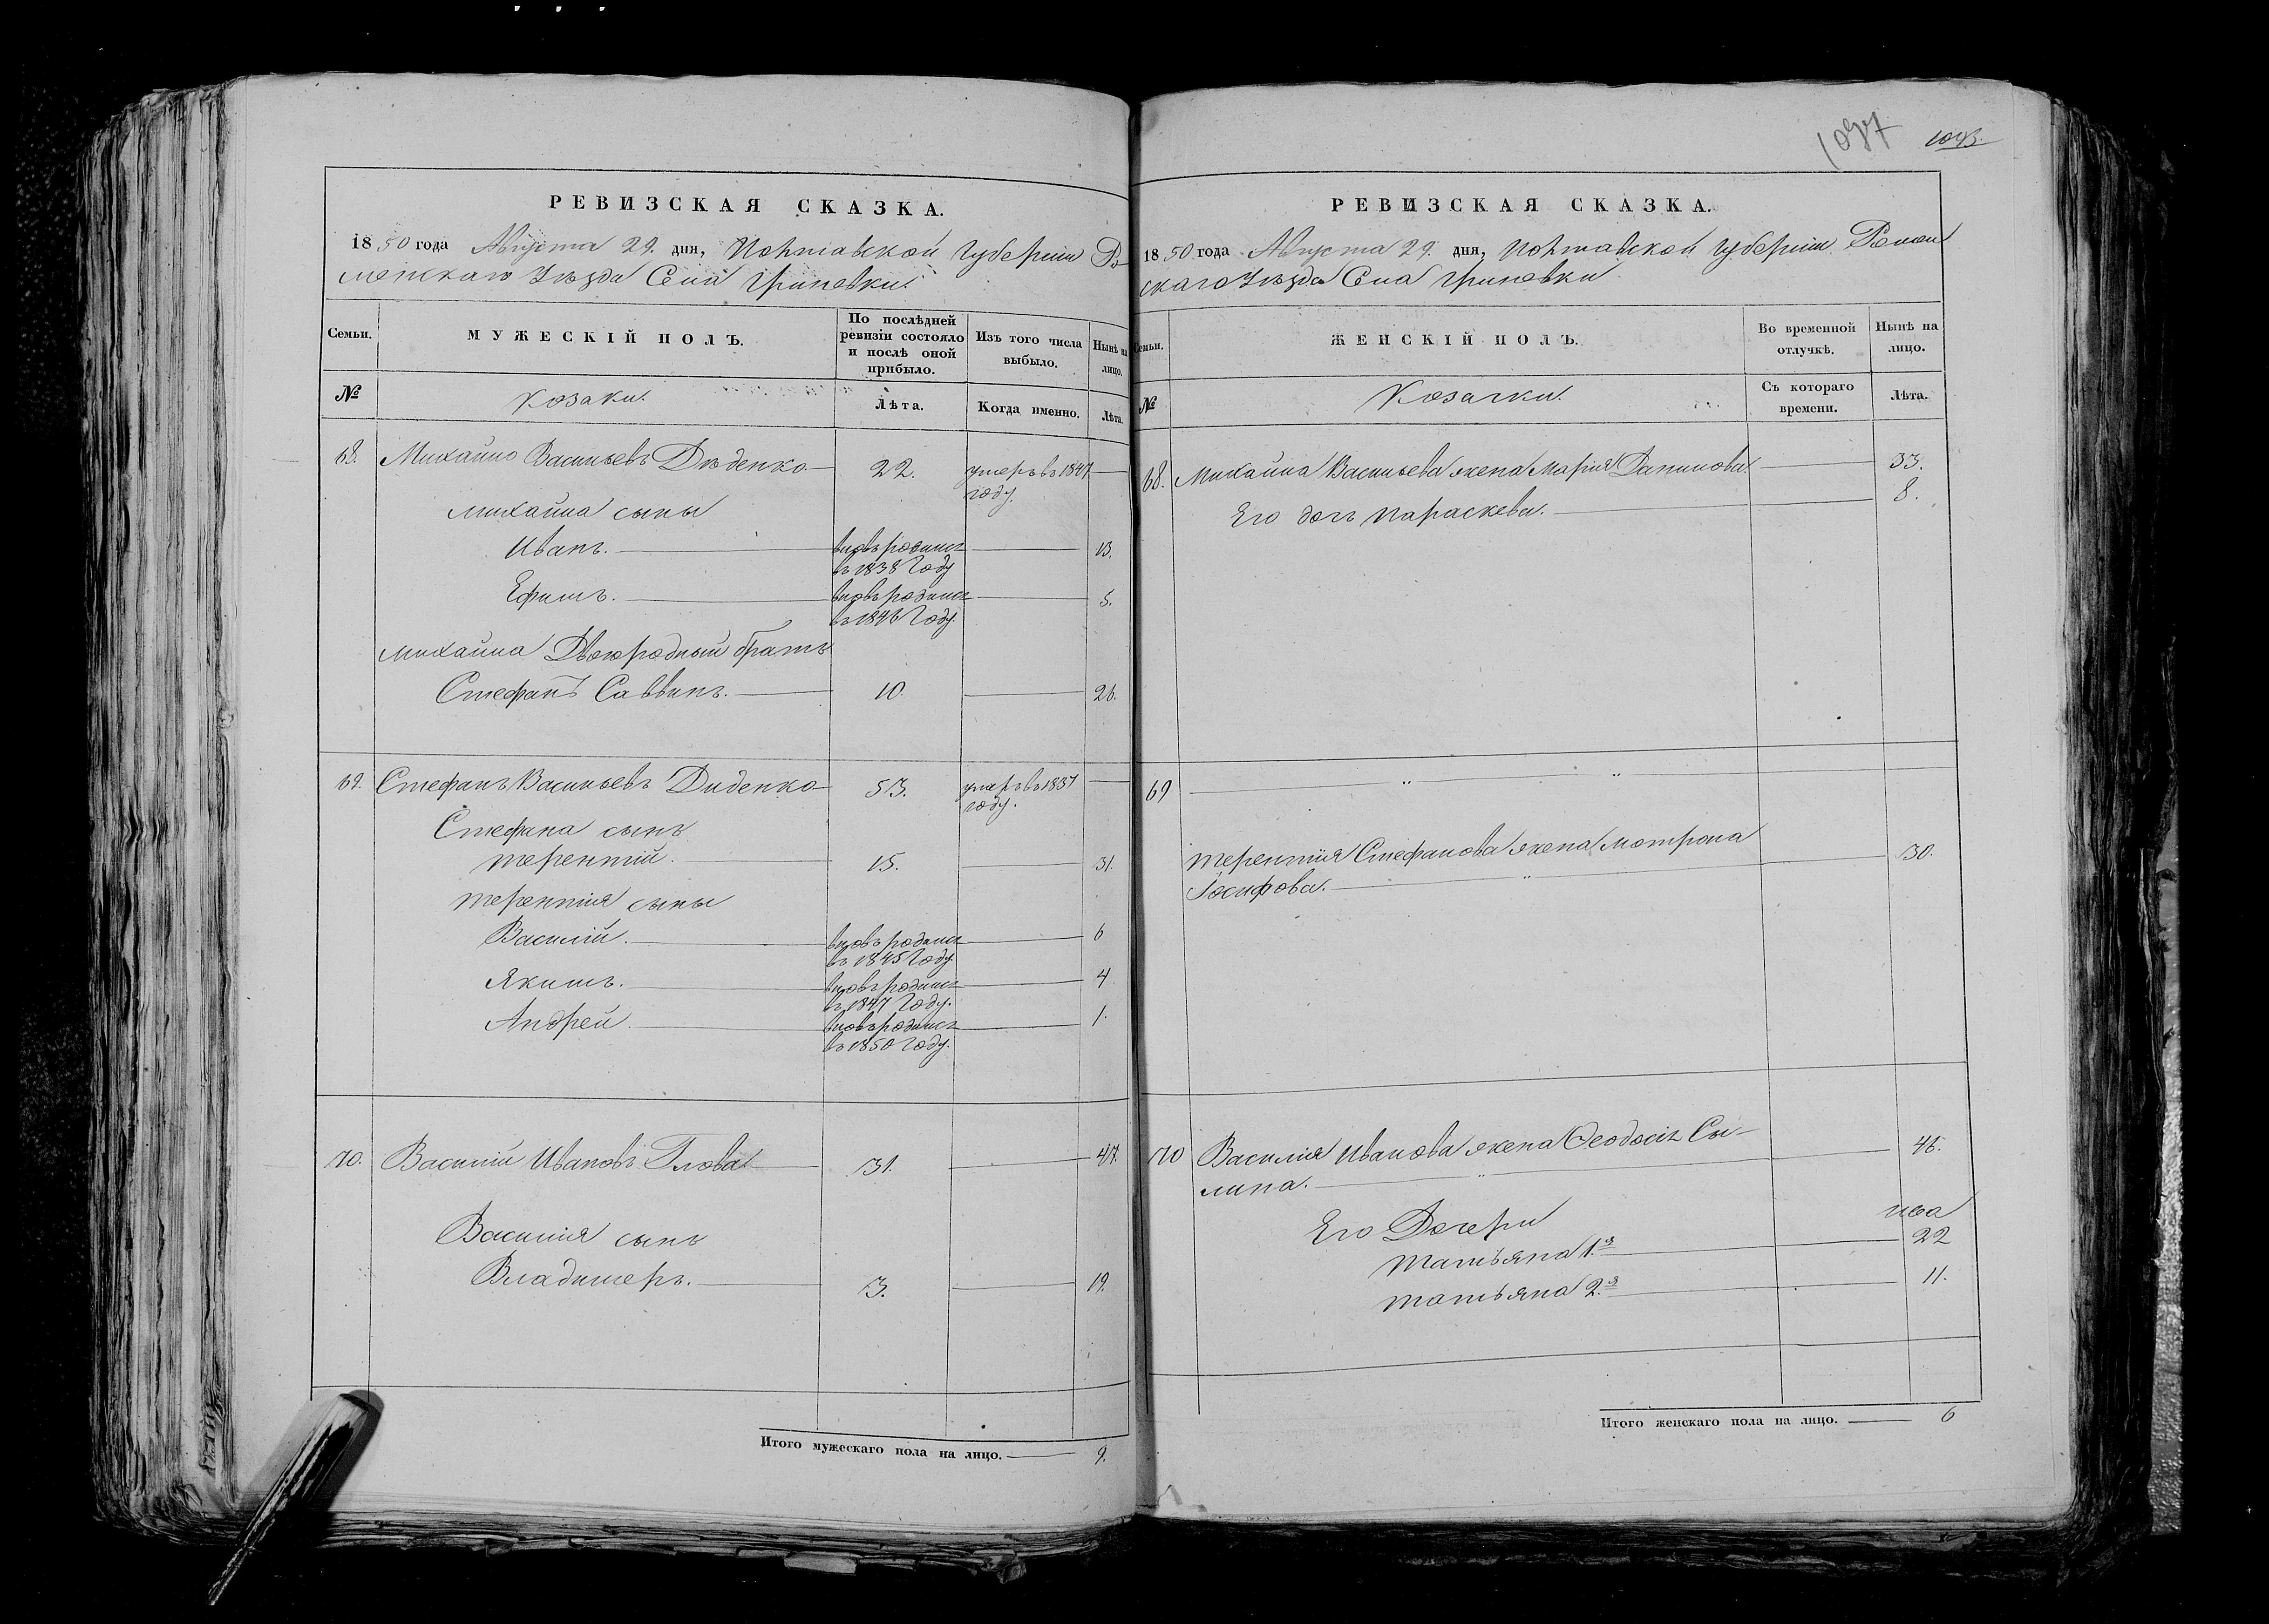 РЕВИЗСКАЯ СКАЗКА.
1850 года Августа 29. дня, Полтавской Губерніи Ро-
менскаго Уѣзда Села Гриневки.
Семьи.
МУЖЕСКІЙ ПОЛЪ.
По послѣдней ревизіи состояло и послѣ оной прибыло.
Изъ того числа выбыло.
Нынѣ на лицо.
№
Козаки.
Лѣта.
Когда именно.
Лѣта.
68. Михайло Васильевъ Дѣденко 22. умеръ въ 1847
году.
Михайла сыны
Иванъ. вновь родился 13.
въ 1838 году
Ефимъ. вновь родился 5.
въ 1846 году.
Михайла Двоюродный братъ
Стефанъ Саввинъ. 10. 26.
69. Стефанъ Васильевъ Диденко 53. умеръ въ 1837
году.
Стефана сынъ
Терентій. 15. 31.
Терентія сыны
Василій. вновь родился 6
въ 1845 году
Якимъ. вновь родился 4
въ 1847 году.
Андрей. вновь родился 1.
въ 1850 году.
70. Василій Ивановъ Глова 31. 47.
Василія сынъ
Владимеръ. 3. 19.
Итого мужескаго пола на лицо. 9.
1043.
РЕВИЗСКАЯ СКАЗКА.
1850 года Августа 29. дня, Полтавской Губерніи Ромен
скаго Уѣзда Села Гриневки
Семьи.
ЖЕНСКІЙ ПОЛЪ.
Во временной отлучкѣ.
Нынѣ на лицо.
№
Козачки.
Съ котораго времени.
Лѣта.
68. Михайла Васильева жена Марія Данилова 33.
Его дочь Параскева. 8.
69
Терентія Стефанова жена Мотрона 30.
Іосифова.
70 Василія Иванова жена Ѳеодосія Си- 46.
лина.
Его Дочери
Татьяна 1.я 22
Татьяна 2.я 11.
Итого женскаго пола на лицо. 6